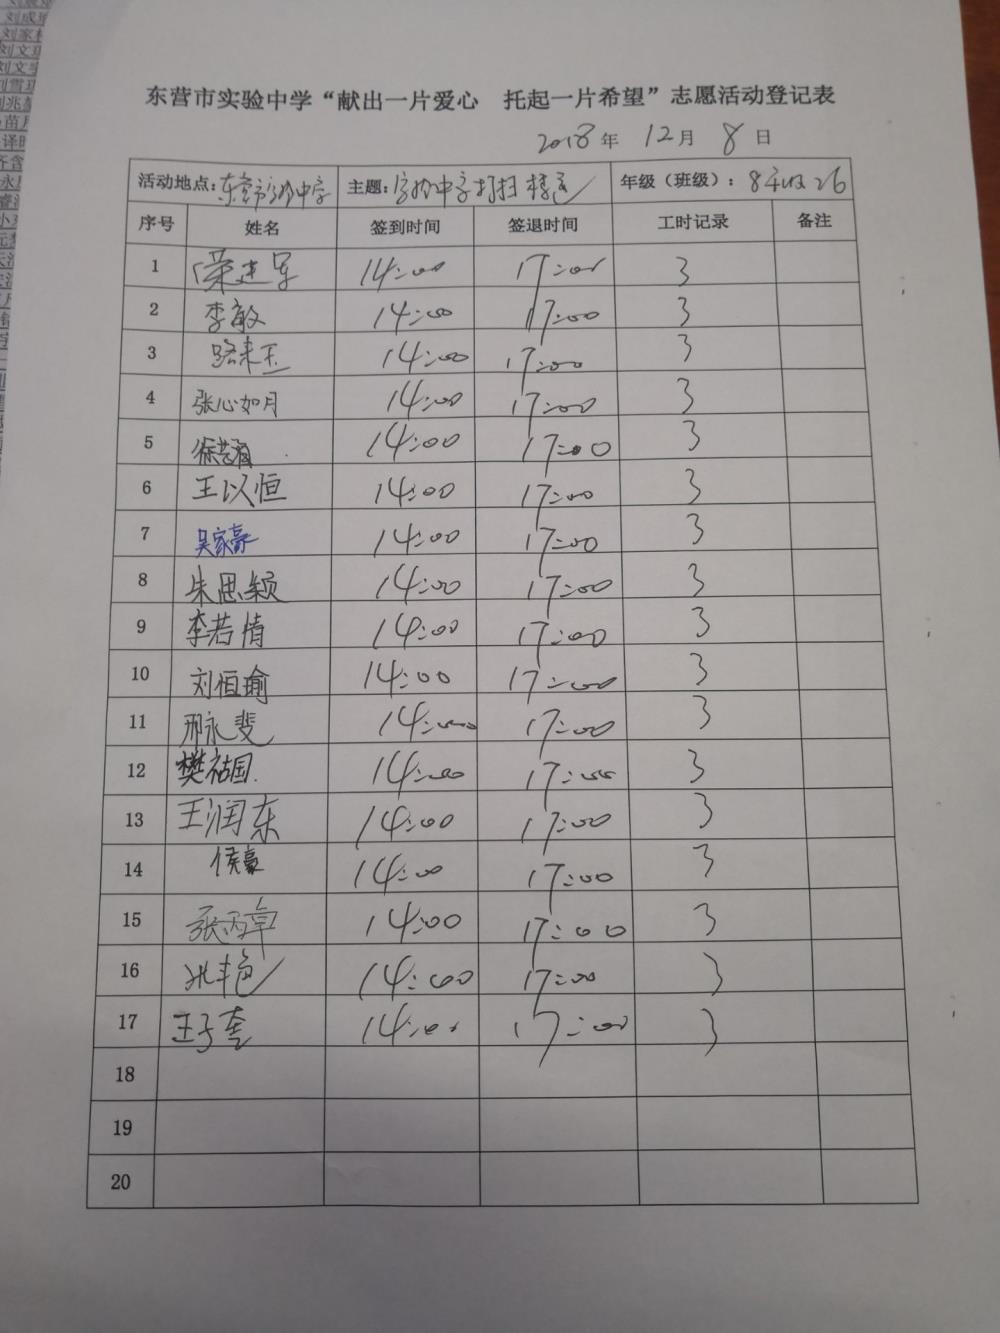 东营市实验中学“献出一片爱心 托起一片希望”志愿活动登记表
2018年 12月 8日
活动地点：东营市实验中学 主题：实验中学打扫楼道 年级（班级）：8年级26
序号 姓名 签到时间 签退时间 工时记录 备注
1 荣建军 14:00 17:00 3
2 李敏 14:00 17:00 3
3 路来玉 14:00 17:00 3
4 张心如月 14:00 17:00 3
5 徐 14:00 17:00 3
6 王以恒 14:00 17:00 3
7 吴家豪 14:00 17:00 3
8 朱思颖 14:00 17:00 3
9 李若情 14:00 17:00 3
10 刘恒瑜 14:00 17:00 3
11 邢永斐 14:00 17:00 3
12 樊祜国 14:00 17:00 3
13 王润东 14:00 17:00 3
14 侯豪 14:00 17:00 3
15 张丙卓 14:00 17:00 3
16 14:00 17:00 3
17 王子奎 14:00 17:00 3
18
19
20